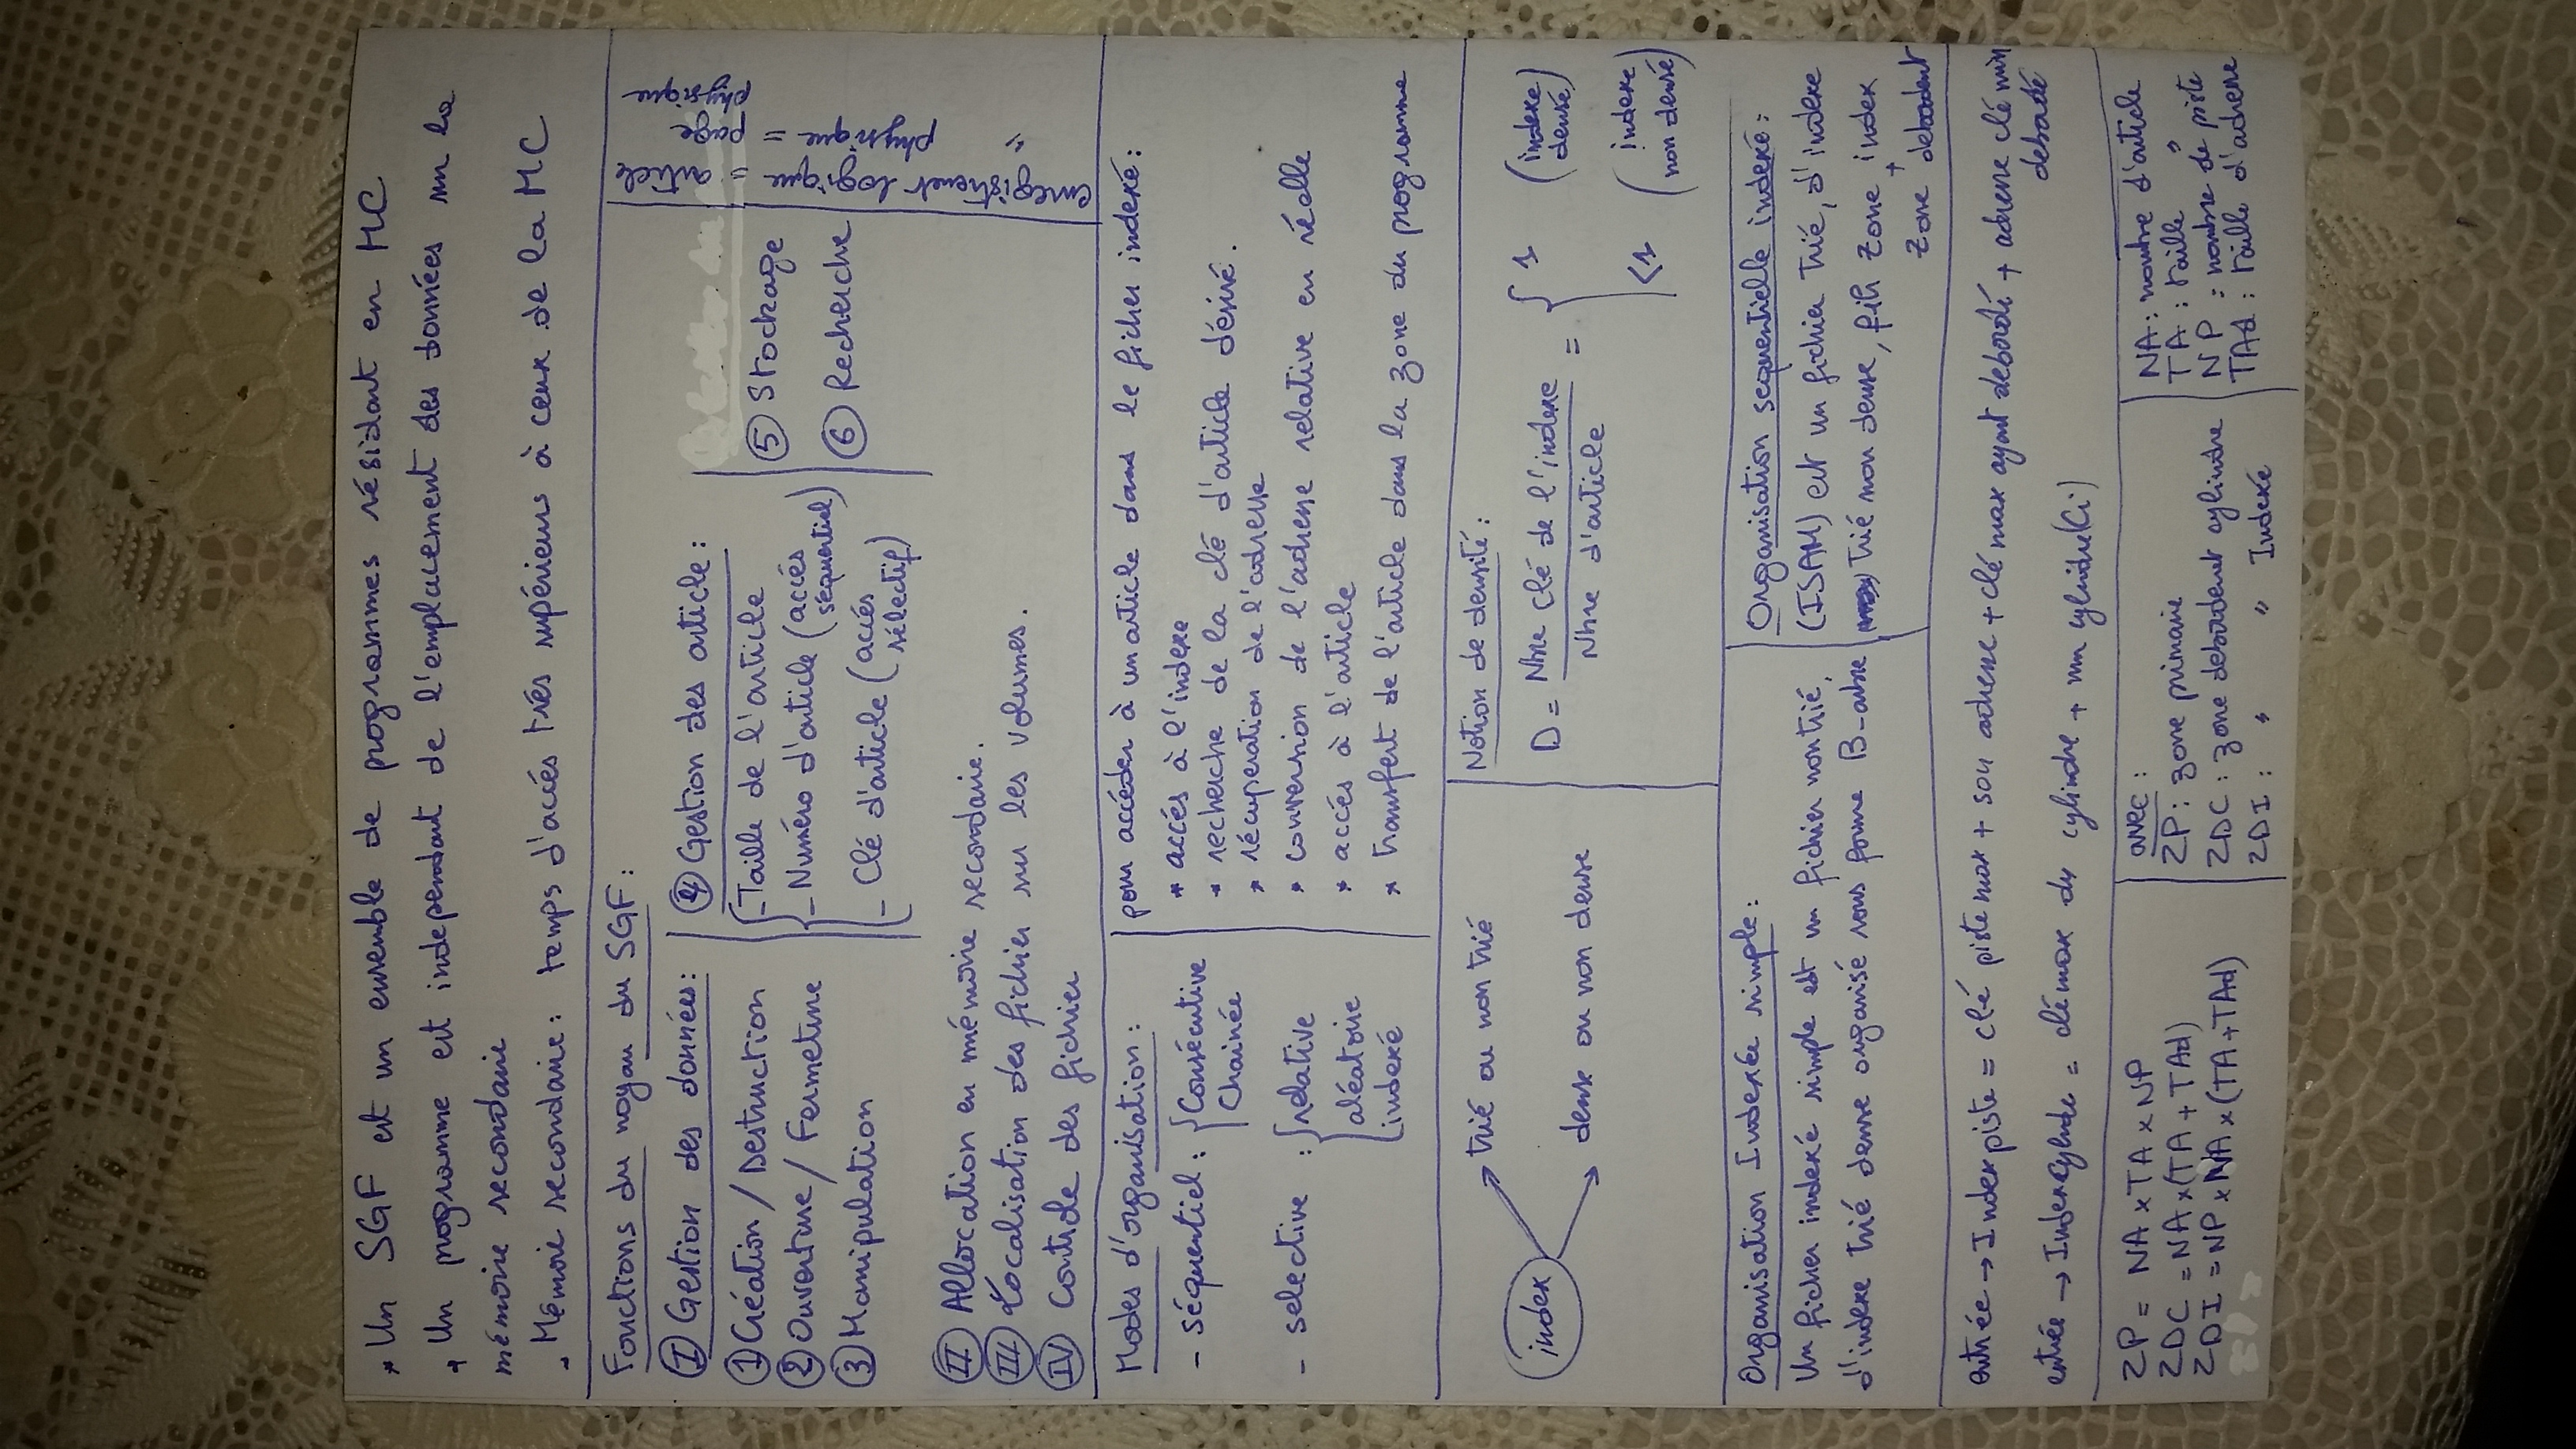 * Un SGF est un ensemble de programmes résidant en MC
* Un programme est independant de l'emplacement des données sur la
mémoire secondaire
- Mémoire secondaire : temps d'accés trés supérieurs à ceux de la MC
Fonctions du noyau du SGF :
I Gestion des données :
1 Création / Destruction
2 Ouverture / Fermeture
3 Manipulation
4 Gestion des article :
- Taille de l'article
- Numéro d'article (accés
séquentiel)
- Clé d'article (accés
sélectif)
5 Stockage
6 Recherche
enregistrement logique = article
" physique = page
physique
II Allocation en mémoire secondaire.
III Localisation des fichier sur les volumes.
IV Controle des fichier
Modes d'organisation :
- séquentiel : { Consécutive
Chainée
- selective : { relative
aléatoire
indexé
pour accéder à un article dans le ficher indexé :
* accés à l'indexe
* recherche de la clé d'article désiré.
* récuperation de l'adresse
* conversion de l'adresse relative en réelle
* accés à l'article
* transfert de l'article dans la zone du programme
index
trié ou non trié
dense ou non dense
Notion de densité :
D = Nbre clé de l'indexe
Nbre d'article
= { 1 (indexe
dense)
<1 (indexe
non densé)
Organisation Indexée simple :
Un ficher indexé simple est un fichier non trié,
d'indexe trié dense organisé sous forme B-arbre
Organisation sequentielle indexé :
(ISAM) est un fichier trié, d'indexe
trié non dense, zone index
+
zone debordent
entrée → Index piste = clé piste max + son adresse + clé max ayant debordé + adresse clé min
debordé
entrée → Index Cylindre = clé max du cylindre + num cylindre (Ci)
ZP = NA x TA x NP
ZDC = NA x (TA + TAd)
ZDI = NP x NA x (TA + TAd)
avec :
ZP : zone primaire
ZDC : zone debordement cylindre
ZDI : " " Indexé
NA : nombre d'article
TA : taille "
NP : nombre de piste
TAd : taille d'adresse